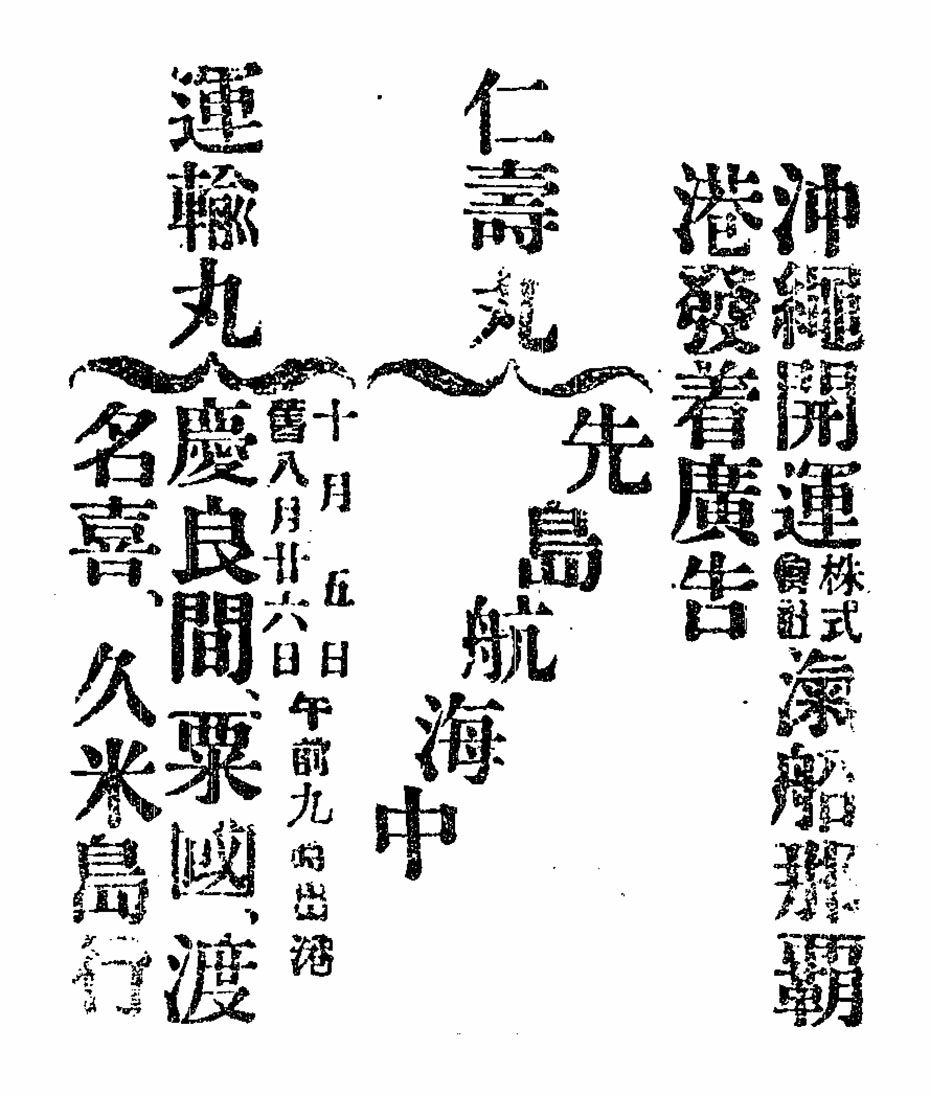 沖繩開運株式會社滊船那覇
港發着廣吿
仁壽丸
先島航海中
運輸丸
十月五日
舊八月廿六日
午前九時出港
慶良間、粟國、渡
名喜、久米島行